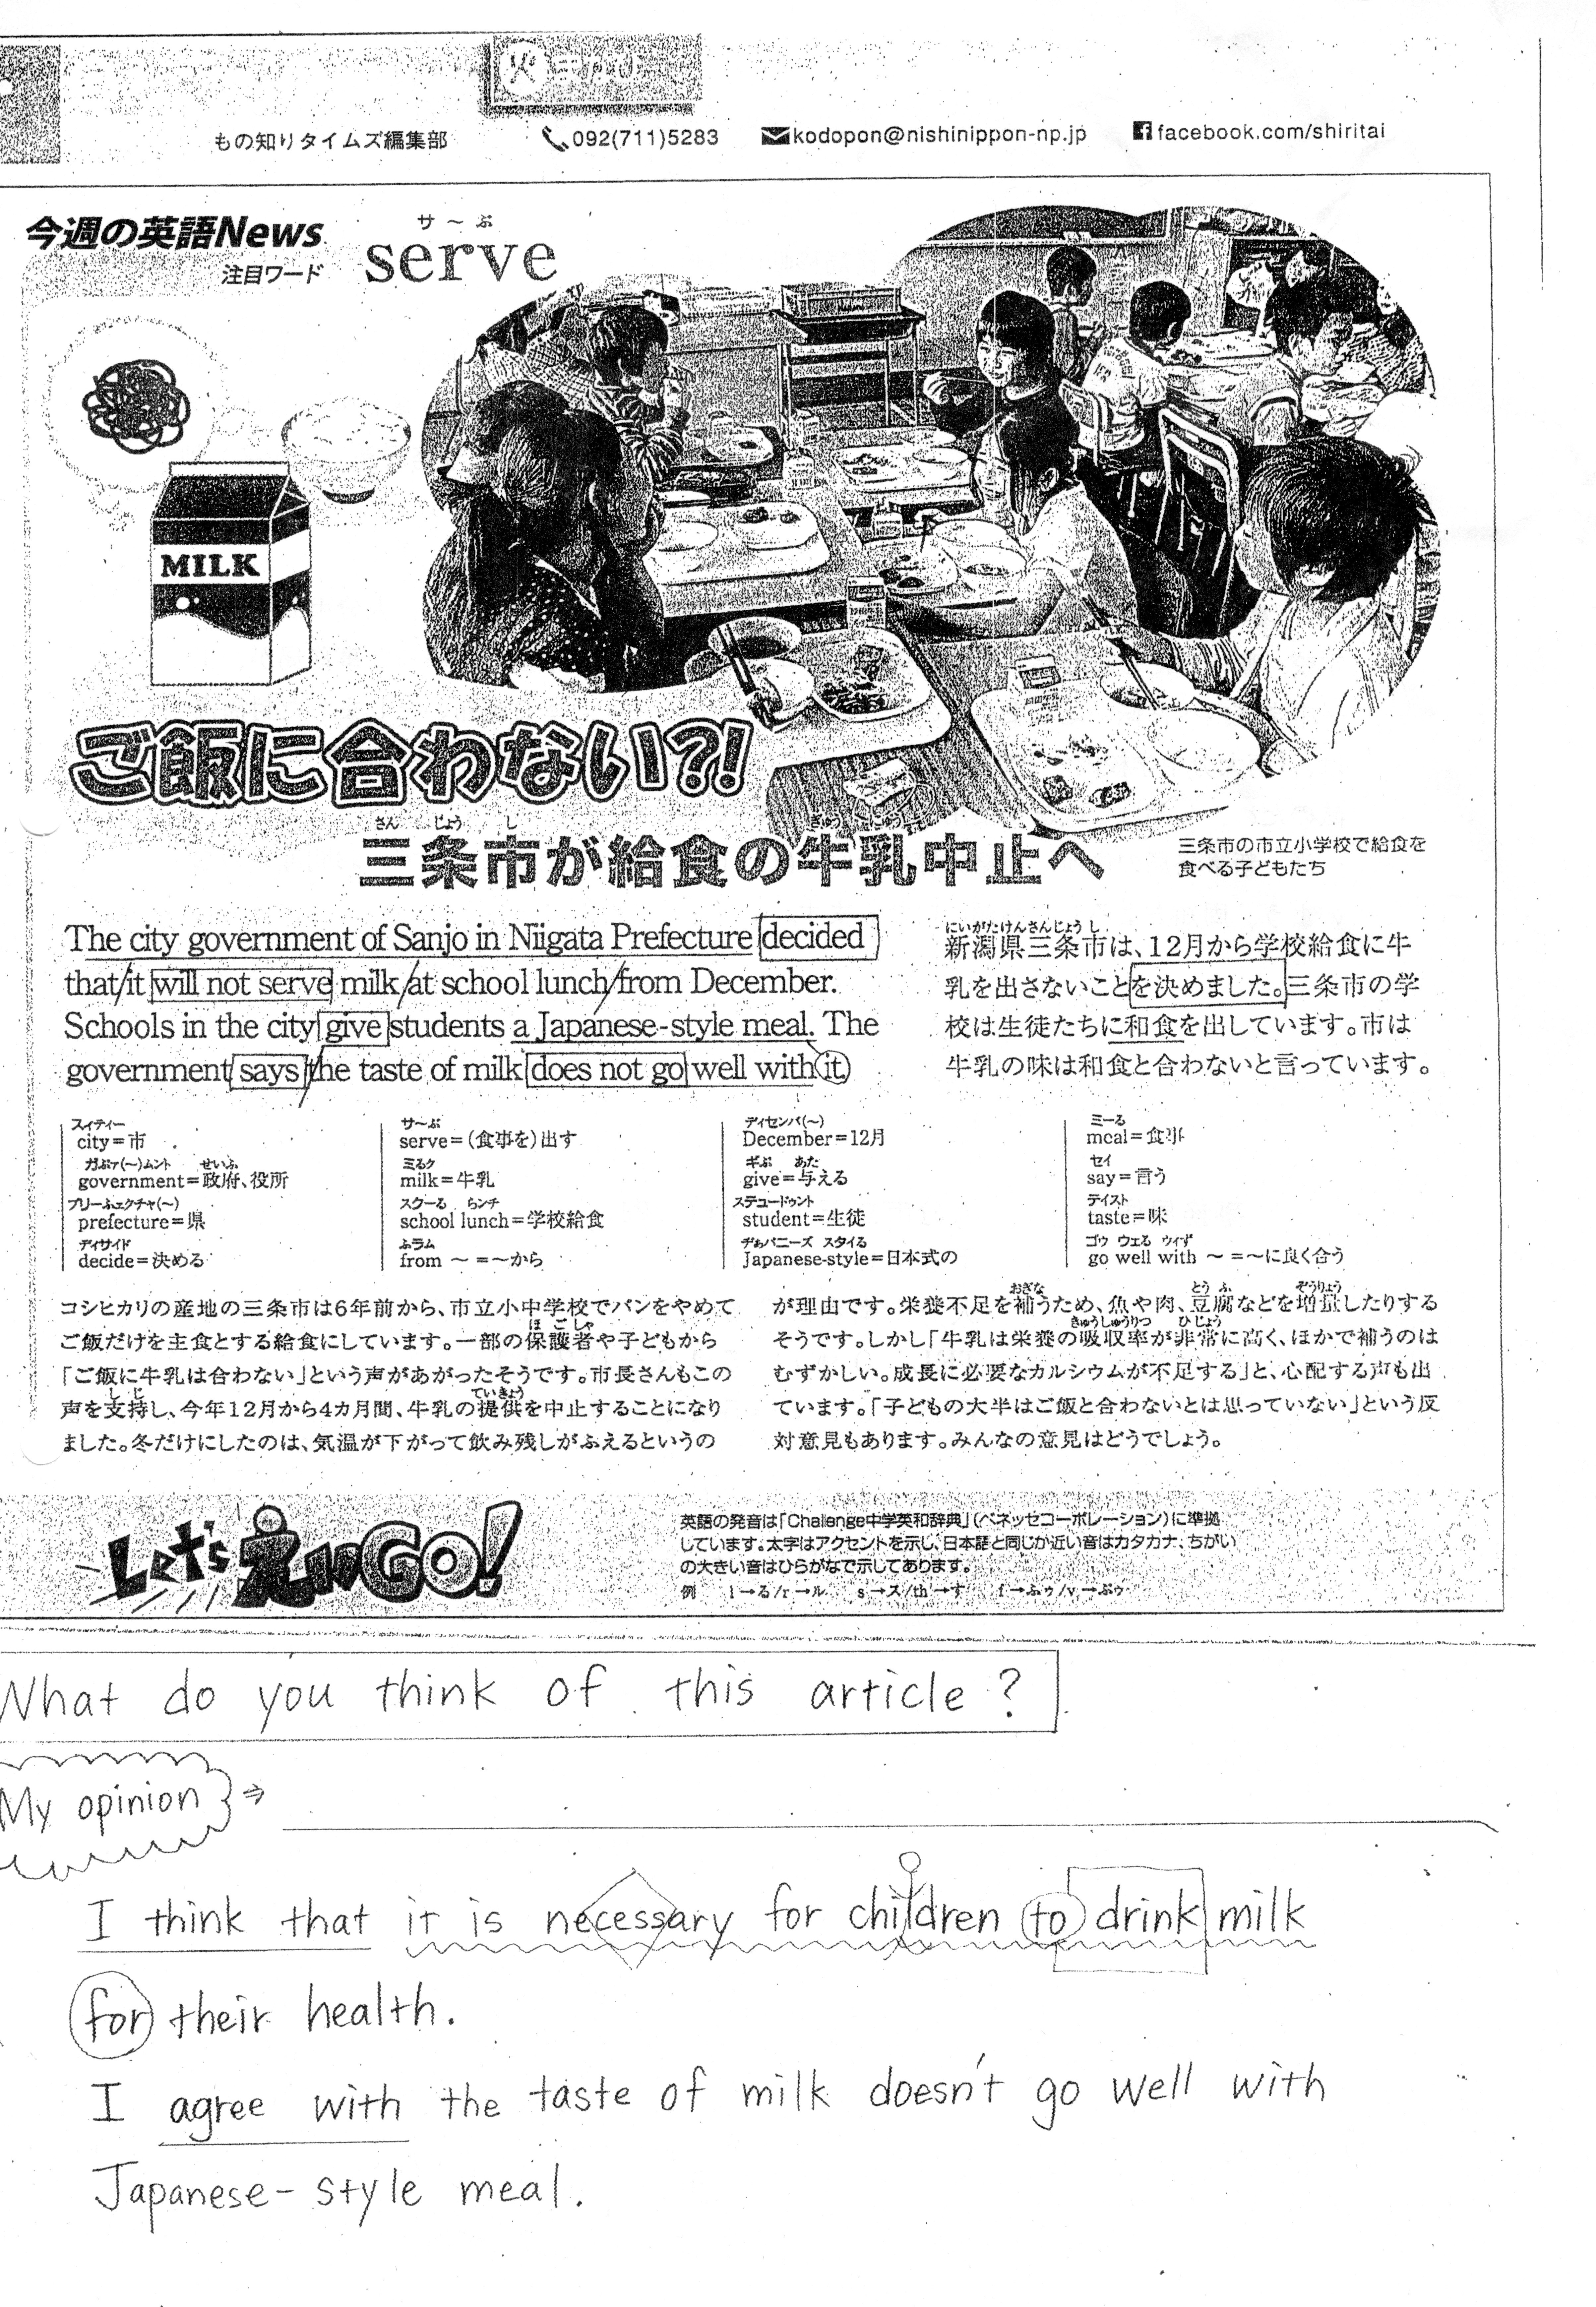 もの知りタイムズ編集部 092(711)5283 kodopon@nishinippon-np.jp facebook.com/shiritai
今週の英語News
注目ワード
サ～ぶ
serve
MILK
ご飯に合わない?!
さん じょう し ぎゅうにゅう
三条市が給食の牛乳中止へ
三条市の市立小学校で給食を
食べる子どもたち
The city government of Sanjo in Niigata Prefecture decided
that it will not serve milk at school lunch from December.
Schools in the city give students a Japanese-style meal. The
government says the taste of milk does not go well with it.
にいがたけんさんじょうし
新潟県三条市は、12月から学校給食に牛
乳を出さないことを決めました。三条市の学
校は生徒たちに和食を出しています。市は
牛乳の味は和食と合わないと言っています。
スィティー
city＝市
ガぶァ(～)ムント せいふ
government＝政府、役所
プリーふェクチャ(～)
prefecture＝県
ディサイド
decide＝決める
サ～ぶ
serve＝(食事を)出す
ミるク
milk＝牛乳
スクーる らンチ
school lunch＝学校給食
ふラム
from ～＝～から
ディセンバ(～)
December＝12月
ギぶ あた
give＝与える
ステュードゥント
student＝生徒
ヂぁパニーズ スタイる
Japanese-style＝日本式の
ミーる
meal＝食事
セイ
say＝言う
テイスト
taste＝味
ゴウ ウェる ウィず
go well with ～＝～に良く合う
コシヒカリの産地の三条市は6年前から、市立小中学校でパンをやめて
ほごしゃ
ご飯だけを主食とする給食にしています。一部の保護者や子どもから
「ご飯に牛乳は合わない」という声があがったそうです。市長さんもこの
しじ ていきょう
声を支持し、今年12月から4カ月間、牛乳の提供を中止することになり
ました。冬だけにしたのは、気温が下がって飲み残しがふえるというの
おぎな とうふ ぞうりょう
が理由です。栄養不足を補うため、魚や肉、豆腐などを増量したりする
きゅうしゅうりつ ひじょう
そうです。しかし「牛乳は栄養の吸収率が非常に高く、ほかで補うのは
むずかしい。成長に必要なカルシウムが不足する」と、心配する声も出
ています。「子どもの大半はご飯と合わないとは思っていない」という反
対意見もあります。みんなの意見はどうでしょう。
Let's えいGO!
英語の発音は「Challenge中学英和辞典」(ベネッセコーポレーション)に準拠
しています。太字はアクセントを示し、日本語と同じか近い音はカタカナ、ちがい
の大きい音はひらがなで示してあります。
例 l→る/r→ル s→ス/th→す f→ふゥ/v→ぶゥ
What do you think of this article?
My opinion ⇒
I think that it is necessary for children to drink milk
for their health.
I agree with the taste of milk doesn't go well with
Japanese-style meal.